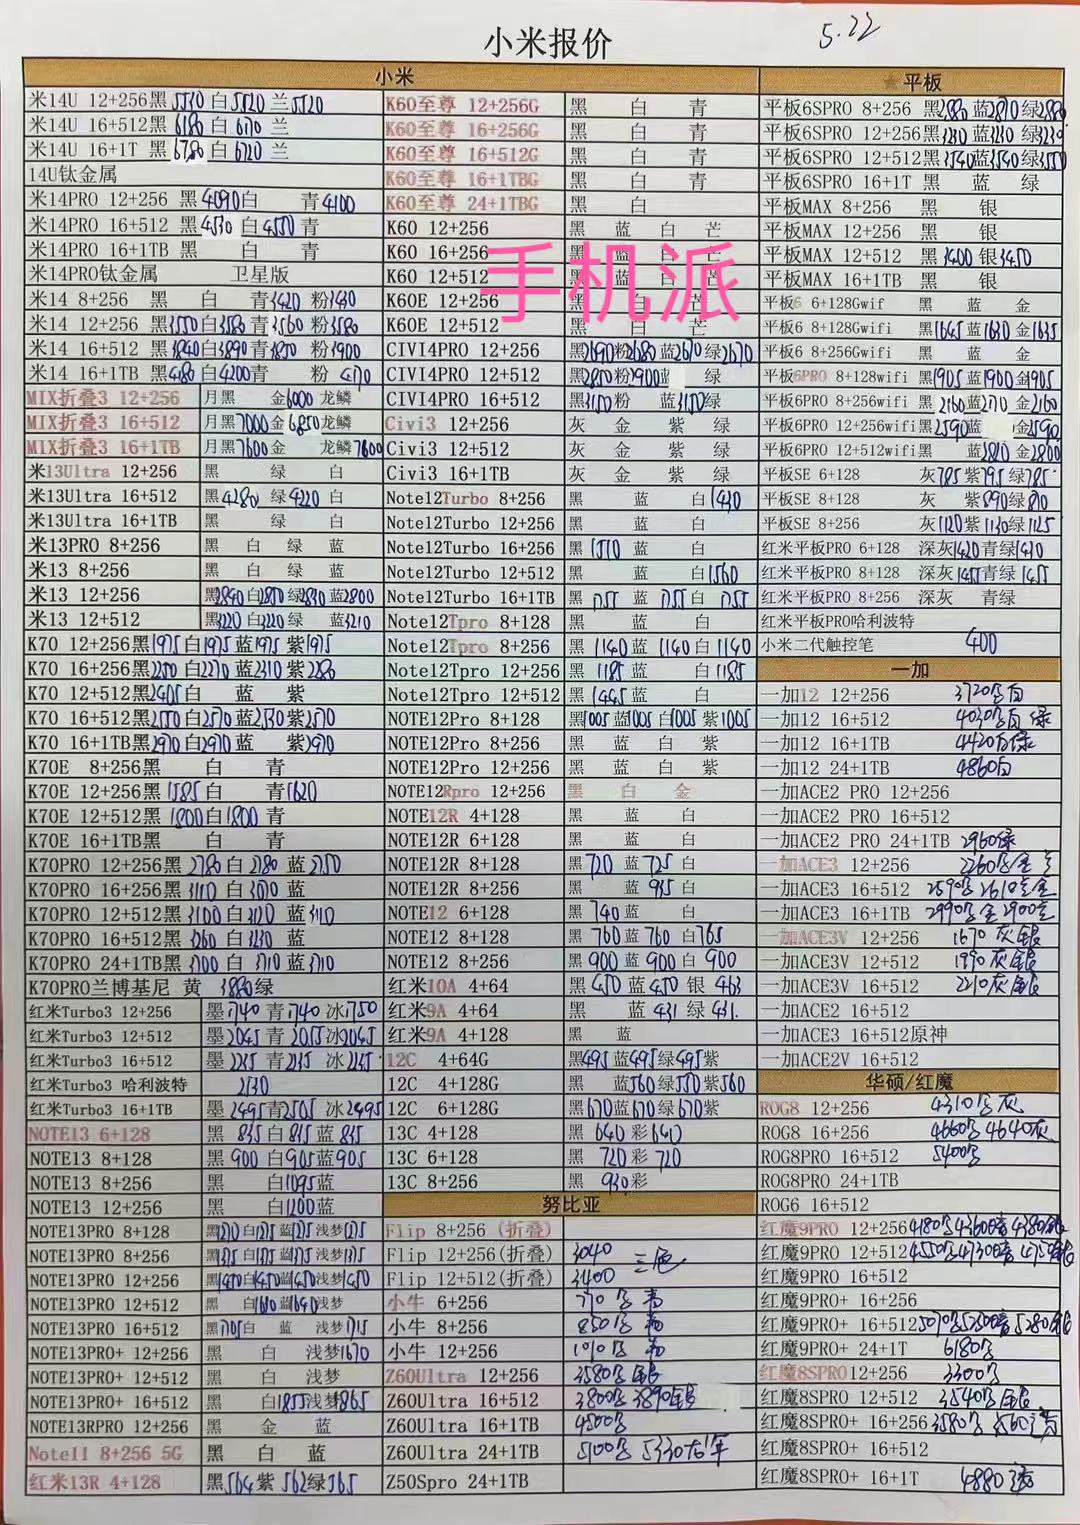 小米报价
5.22
小米
米14U 12+256黑5510 白5520 兰5520
米14U 16+512黑6180 白6170 兰
米14U 16+1T 黑6780 白6720 兰
14U钛金属
米14PRO 12+256 黑4090白 青4100
米14PRO 16+512 黑4530 白4550 青
米14PRO 16+1TB 黑 白 青
米14PRO钛金属 卫星版
米14 8+256 黑 白 青3420 粉3430
米14 12+256 黑3550白3580青3560 粉3580
米14 16+512 黑3840白3890青3850 粉3900
米14 16+1TB 黑4180白4200青 粉 4170
MIX折叠3 12+256 月黑 金6000 龙鳞
MIX折叠3 16+512 月黑7000金6850龙鳞
MIX折叠3 16+1TB 月黑7600金 龙鳞7600
米13Ultra 12+256 黑 绿 白
米13Ultra 16+512 黑4280 绿4220 白
米13Ultra 16+1TB 黑 绿 白
米13PRO 8+256 黑 白 绿 蓝
米13 8+256 黑 白 绿 蓝
米13 12+256 黑2840白2850绿2830蓝2800
米13 12+512 黑3220白3220绿 蓝3210
K70 12+256黑1975白1975蓝1975紫1975
K70 16+256黑2200白2270蓝2310紫2280
K70 12+512黑2405白 蓝 紫
K70 16+512黑2550白2570蓝2530紫2570
K70 16+1TB黑2970白2970蓝 紫2970
K70E 8+256黑 白 青
K70E 12+256黑1585白 青1620
K70E 12+512黑1800白1800青
K70E 16+1TB黑 白 青
K70PRO 12+256黑2780白2780蓝2750
K70PRO 16+256黑3110白3070蓝
K70PRO 12+512黑3100白3120蓝3110
K70PRO 16+512黑3260白3230蓝
K70PRO 24+1TB黑3700白3710蓝3710
K70PRO兰博基尼 黄 3880绿
红米Turbo3 12+256 墨1740 青1740 冰1750
红米Turbo3 12+512 墨2045 青2055冰2045
红米Turbo3 16+512 墨2235 青2235 冰2245
红米Turbo3 哈利波特 2530
红米Turbo3 16+1TB 墨2495青2505 冰2495
NOTE13 6+128 黑 835 白815 蓝835
NOTE13 8+128 黑 900 白905蓝905
NOTE13 8+256 黑 白1095蓝
NOTE13 12+256 黑 白1200蓝
NOTE13PRO 8+128 黑1270白1275蓝1275浅梦1275
NOTE13PRO 8+256 黑1375白1375蓝1375浅梦1375
NOTE13PRO 12+256 黑1450白1450蓝1450浅梦1450
NOTE13PRO 12+512 黑 白1610蓝1640浅梦
NOTE13PRO 16+512 黑1705白 蓝 浅梦1715
NOTE13PRO+ 12+256 黑 白 浅梦1670
NOTE13PRO+ 12+512 黑 白 浅梦
NOTE13PRO+ 16+512 黑 白1855浅梦1865
NOTE13RPRO 12+256 黑 金 蓝
Note11 8+256 5G 黑 白 蓝
红米13R 4+128 黑564紫 562绿565
K60至尊 12+256G 黑 白 青
K60至尊 16+256G 黑 白 青
K60至尊 16+512G 黑 白 青
K60至尊 16+1TBG 黑 白 青
K60至尊 24+1TBG 黑 白
K60 12+256 黑 蓝 白 芒
K60 16+256 黑 蓝 白 芒
K60 12+512 黑 蓝 白 芒
K60E 12+256 黑 白 芒
K60E 12+512 黑 白 芒
手机派
CIVI4PRO 12+256 黑2690粉2680蓝2670绿2670
CIVI4PRO 12+512 黑2850粉2900蓝 绿
CIVI4PRO 16+512 黑3150粉 蓝3150绿
Civi3 12+256 灰 金 紫 绿
Civi3 12+512 灰 金 紫 绿
Civi3 16+1TB 灰 金 紫 绿
Note12Turbo 8+256 黑 蓝 白1430
Note12Turbo 12+256 黑 蓝 白
Note12Turbo 16+256 黑1510 蓝 白
Note12Turbo 12+512 黑 蓝 白1560
Note12Turbo 16+1TB 黑 1755 蓝 1755白 1755
Note12Tpro 8+128 黑 蓝 白
Note12Tpro 8+256 黑 1140蓝 1140白1140
Note12Tpro 12+256 黑 1185蓝 白1185
Note12Tpro 12+512 黑 1445蓝 白
NOTE12Pro 8+128 黑1005蓝1005白1005紫1005
NOTE12Pro 8+256 黑 蓝 白 紫
NOTE12Pro 12+256 黑 蓝 白 紫
NOTE12Rpro 12+256 黑 白 金
NOTE12R 4+128 黑 蓝 白
NOTE12R 6+128 黑 蓝 白
NOTE12R 8+128 黑720 蓝725 白
NOTE12R 8+256 黑 蓝 935白
NOTE12 6+128 黑 740蓝 白
NOTE12 8+128 黑 760 蓝760 白765
NOTE12 8+256 黑900 蓝900白 900
红米10A 4+64 黑450 蓝450 银 463
红米9A 4+64 黑 蓝431 绿431.
红米9A 4+128 黑 蓝
12C 4+64G 黑495蓝495绿495紫
12C 4+128G 黑 蓝560绿550紫560
12C 6+128G 黑670蓝670绿670紫
13C 4+128 黑 640彩640
13C 6+128 黑 720彩 720
13C 8+256 黑 930彩
努比亚
Flip 8+256 (折叠)
Flip 12+256(折叠) 3040 三色
Flip 12+512(折叠) 3400
小牛 6+256 770
小牛 8+256 850
小牛 12+256 1010
Z60Ultra 12+256 3580 银
Z60Ultra 16+512 3800 3890银
Z60Ultra 16+1TB 4500
Z60Ultra 24+1TB 5100 5330
Z50Spro 24+1TB
★平板
平板6SPRO 8+256 黑2880蓝2870绿2880
平板6SPRO 12+256黑3230蓝3230绿3230
平板6SPRO 12+512黑3540蓝3540绿3550
平板6SPRO 16+1T 黑 蓝 绿
平板MAX 8+256 黑 银
平板MAX 12+256 黑 银
平板MAX 12+512 黑3400 银3450
平板MAX 16+1TB 黑 银
平板6 6+128Gwif 黑 蓝 金
平板6 8+128Gwifi 黑1645蓝1630金1635
平板6 8+256Gwifi 黑 蓝 金
平板6PRO 8+128wifi 黑1905蓝1900金1905
平板6PRO 8+256wifi 黑 2160蓝2170 金2160
平板6PRO 12+256wifi黑2590蓝 金2590
平板6PRO 12+512wifi黑 蓝2810 金2800
平板SE 6+128 灰785紫795绿785
平板SE 8+128 灰 紫890绿870
平板SE 8+256 灰1120紫1130绿1125
红米平板PRO 6+128 深灰1420青绿1430
红米平板PRO 8+128 深灰1455青绿1455
红米平板PRO 8+256 深灰 青绿
红米平板PRO哈利波特
小米二代触控笔 400
一加
一加12 12+256 3720 白
一加12 16+512 4020 白 绿
一加12 16+1TB 4420白绿
一加12 24+1TB 4860白
一加ACE2 PRO 12+256
一加ACE2 PRO 16+512
一加ACE2 PRO 24+1TB 2960绿
一加ACE3 12+256 2260
一加ACE3 16+512 2590 2610
一加ACE3 16+1TB 2990 2900
一加ACE3V 12+256 1670 灰 银
一加ACE3V 12+512 1990 灰 银
一加ACE3V 16+512 2210灰 银
一加ACE2 16+512
一加ACE3 16+512原神
一加ACE2V 16+512
华硕/红魔
ROG8 12+256 4310 灰
ROG8 16+256 4660 4640灰
ROG8PRO 16+512 5400
ROG8PRO 24+1TB
ROG6 16+512
红魔9PRO 12+256 4180 4360 4380
红魔9PRO 12+512 4550 4730
红魔9PRO 16+512
红魔9PRO+ 16+256
红魔9PRO+ 16+512 5070 5230 5280
红魔9PRO+ 24+1T 6180
红魔8SPRO12+256 3300
红魔8SPRO+ 12+512 3540 银
红魔8SPRO+ 16+256 3580 3560
红魔8SPRO+ 16+512
红魔8SPRO+ 16+1T 4880透